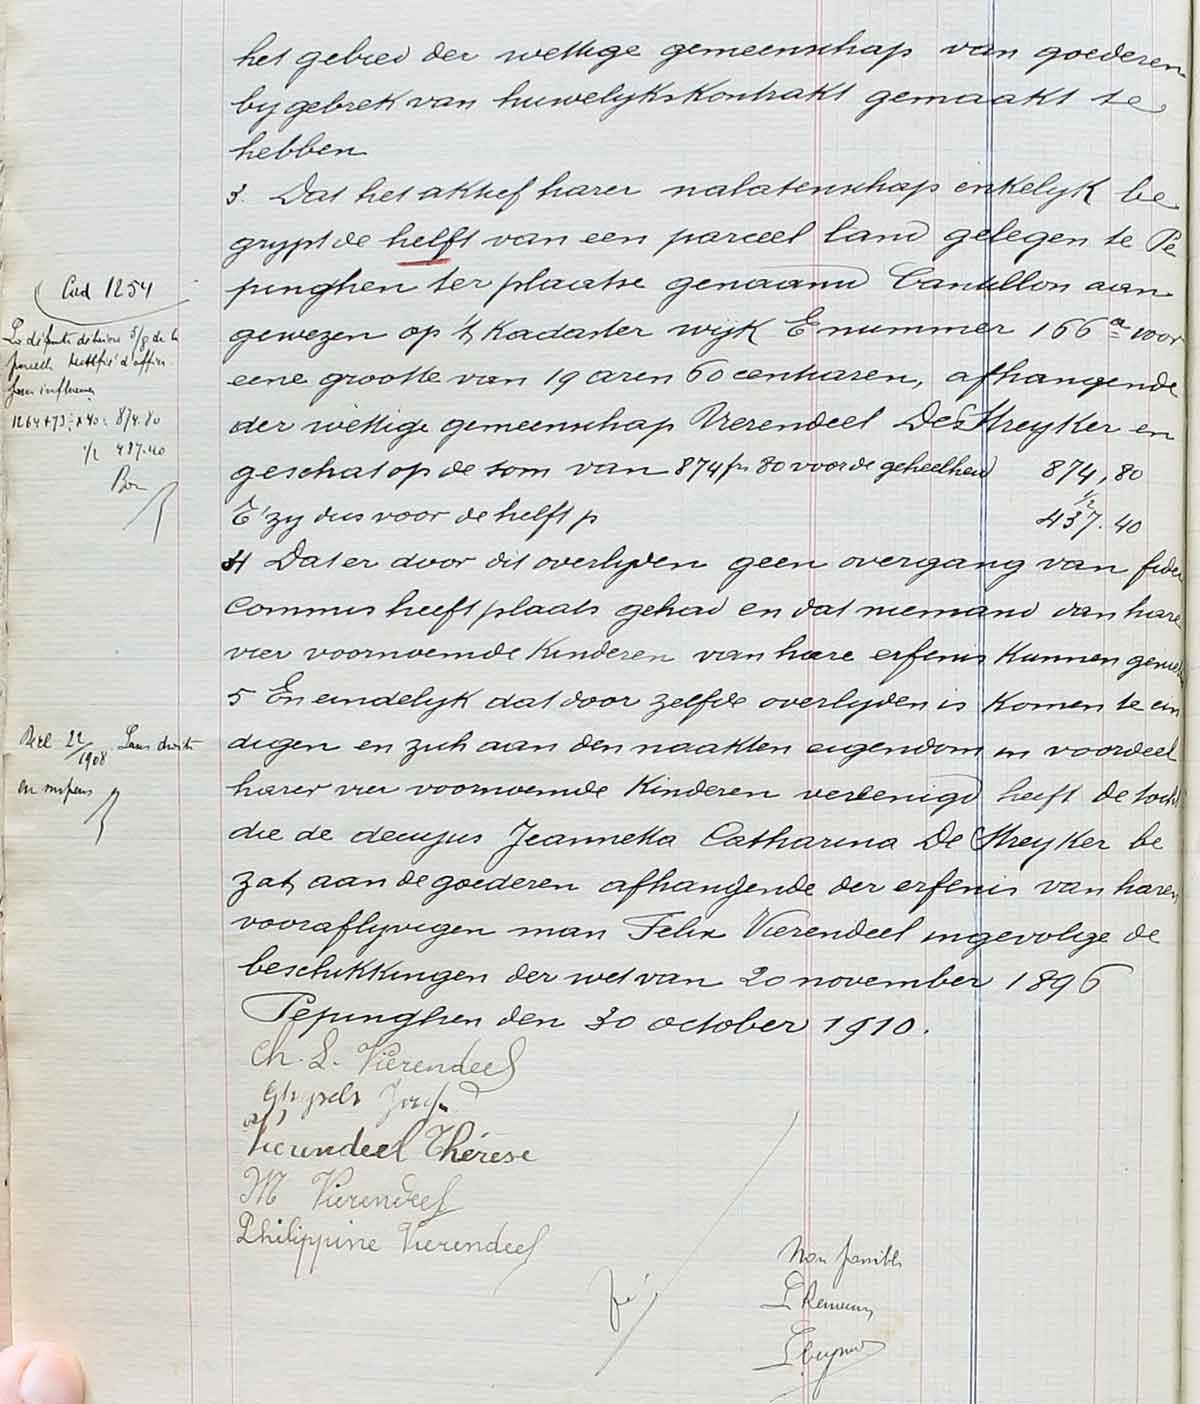 het gebied der wettige gemeenschap van goederen
by gebrek van huwelykskontrakt gemaakt te
hebben
3. Dat het aktief harer nalatenschap enkelyk be
grypt de helft van een parceel land gelegen te Pe
pinghen ter plaatse genaamd Cantillon aan
gewezen op 't Kadaster wijk E nummer 166a voor
eene grootte van 19 aren 60 centiaren, afhangende
der wettige gemeenschap Vierendeel De Streyker en
geschat op de som van 874 fr 80 voor de geheelheid 874,80
1/2
T'zy dus voor de helft 437.40
4 Dat er door dit overlyden geen overgang van fidei
commis heeft plaats gehad en dat niemand van hare
vier voornoemde Kinderen van hare erfenis kunnen
5 En eindelyk dat door zelfde overlyden is komen te ein
digen en zich aan den naakten eigendom in voordeel
harer vier voornoemde Kinderen vereenigd heeft de tocht
die de decujus Jeannetta Catharina De Streyker be
zat aan de goederen afhangende der erfenis van haren
vooraflyvigen man Felix Vierendeel ingevolge de
beschikkingen der wet van 20 november 1896
Pepinghen den 30 october 1910.
Ch. L. Vierendeel
Ghysels
Vierendeel Thérèse
M Vierendeel
Philippine Vierendeel
1254
5/8 de la
parcelle
874.80
1/2 437.40
Bon
22/1908
Non passible